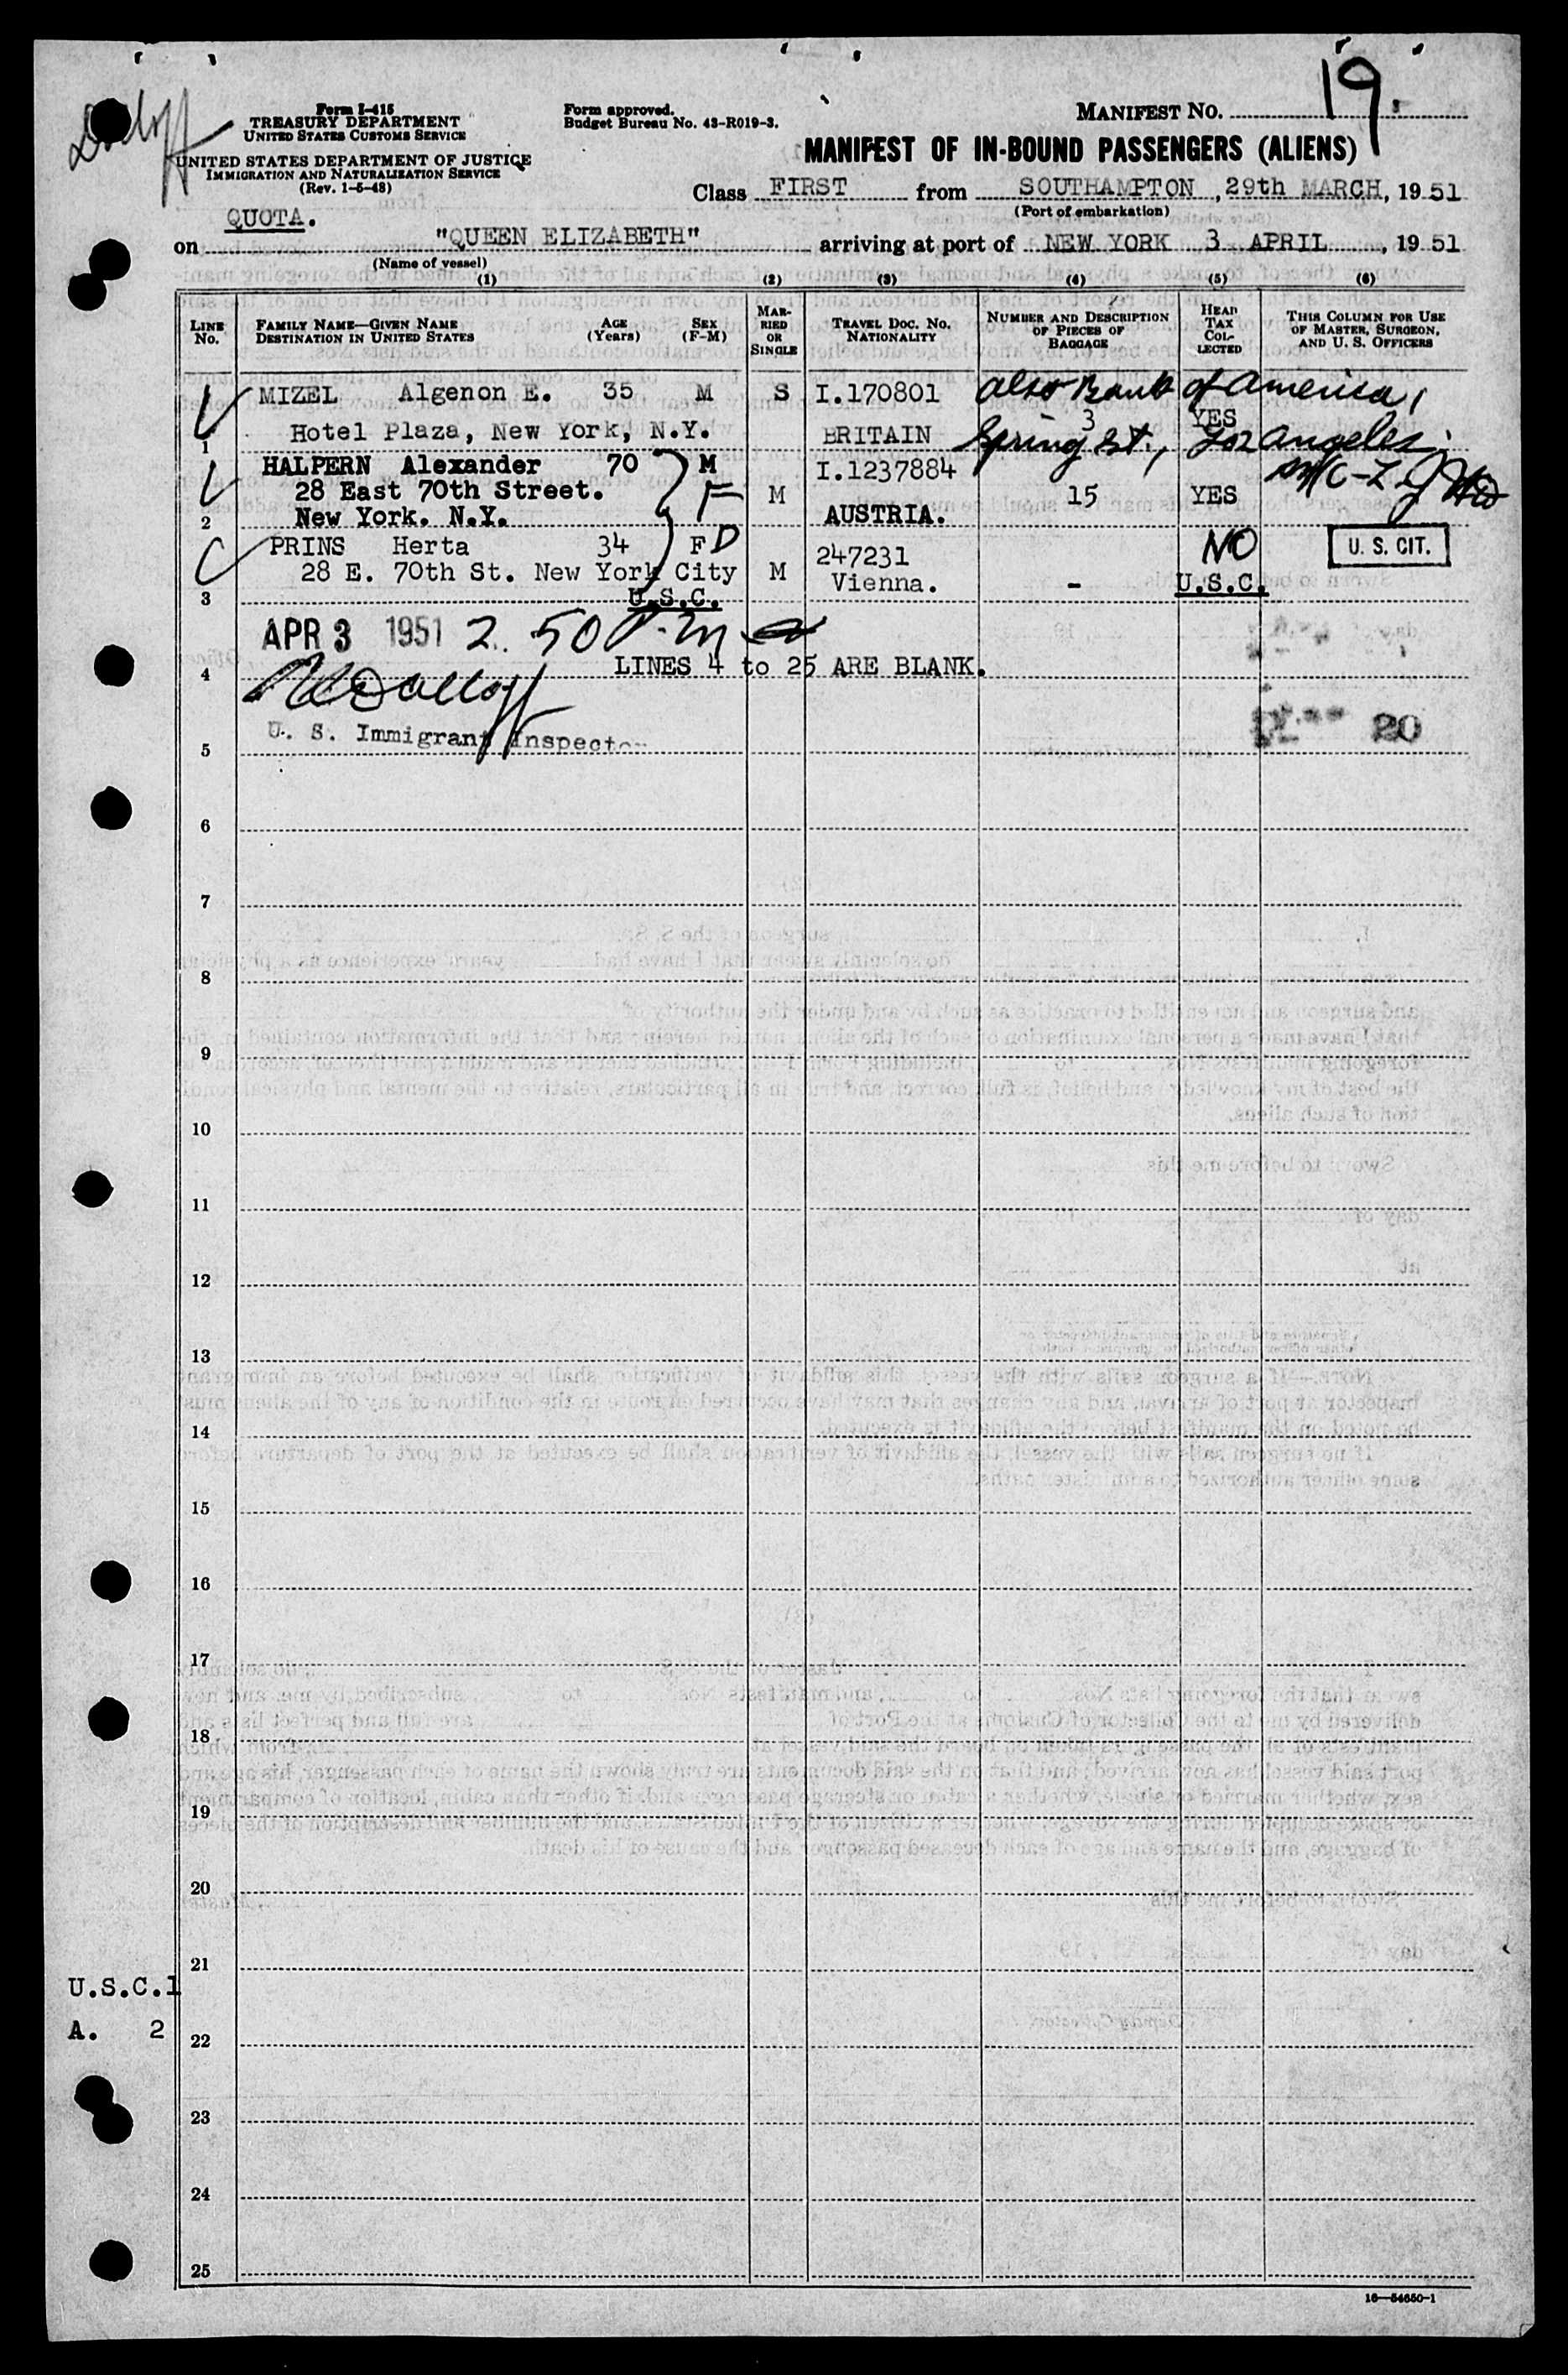 19.
Form I-415
TREASURY DEPARTMENT
UNITED STATES CUSTOMS SERVICE
UNITED STATES DEPARTMENT OF JUSTICE
IMMIGRATION AND NATURALIZATION SERVICE
(Rev. 1-5-48)
Form approved.
Budget Bureau No. 43-R019-3.
MANIFEST NO.
MANIFEST OF IN-BOUND PASSENGERS (ALIENS)
Class FIRST from SOUTHAMPTON, 29th MARCH, 19 51
(Port of embarkation)
QUOTA.
on "QUEEN ELIZABETH" arriving at port of NEW YORK 3 APRIL, 19 51
(Name of vessel)
(1) (2) (3) (4) (5) (6)
LINE No.
FAMILY NAME—GIVEN NAME
DESTINATION IN UNITED STATES
AGE (Years)
SEX (F-M)
MARRIED OR SINGLE
TRAVEL DOC. NO.
NATIONALITY
NUMBER AND DESCRIPTION OF PIECES OF BAGGAGE
HEAD TAX COLLECTED
THIS COLUMN FOR USE OF MASTER, SURGEON, AND U. S. OFFICERS
MIZEL Algenon E. 35 M S I.170801 also Bank of America,
1 Hotel Plaza, New York, N.Y. BRITAIN 3 YES
Spring St., Los Angeles.
HALPERN Alexander 70 M I.1237884
28 East 70th Street. F M 15 YES
2 New York. N.Y. AUSTRIA.
PRINS Herta 34 F D 247231 NO U. S. CIT.
28 E. 70th St. New York City M Vienna. - U.S.C.
3 U.S.C.
APR 3 1951 2.50 P.M
4 LINES 4 to 25 ARE BLANK.
U. S. Immigrant Inspector
20
5
6
7
8
9
10
11
12
13
14
15
16
17
18
19
20
21
U.S.C.1
A. 2
22
23
24
25
16—54650-1